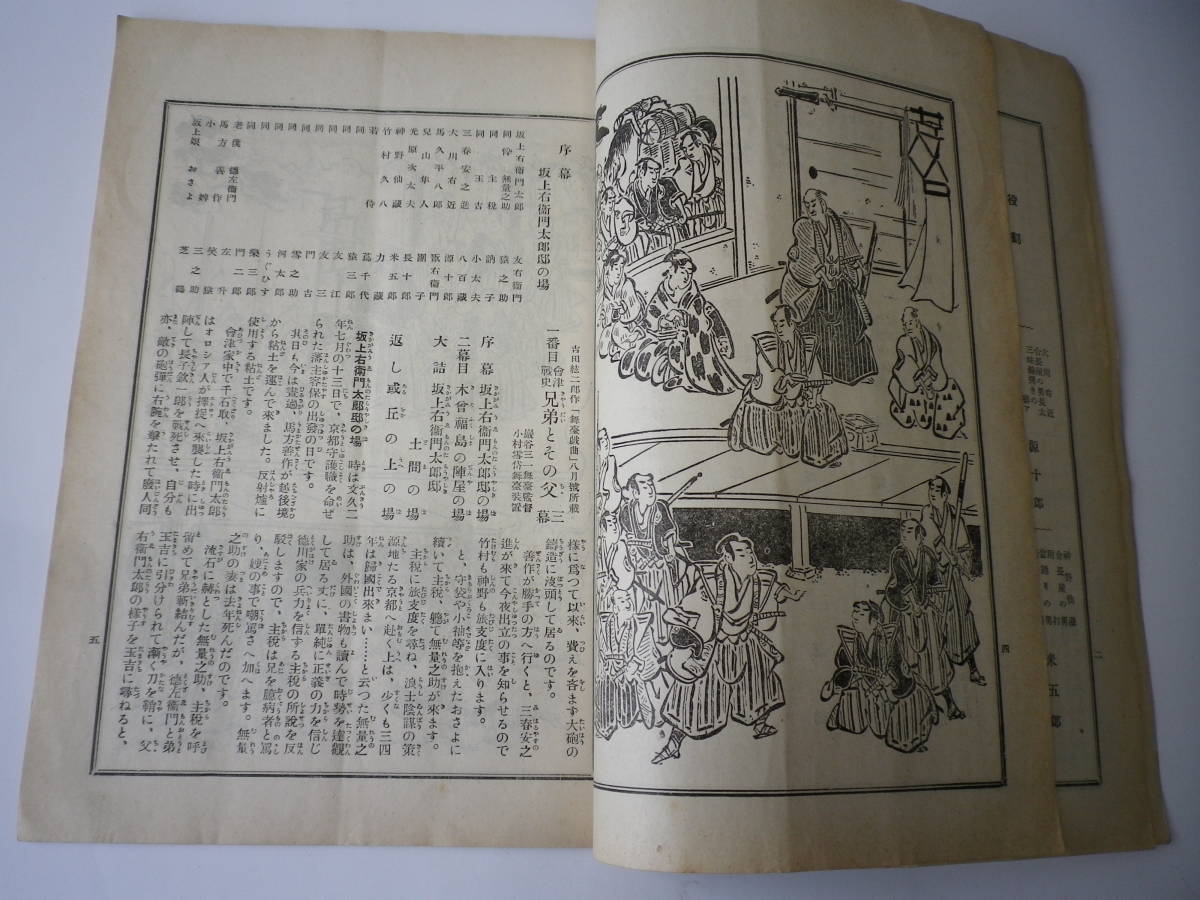 吉田絃二郎作「舞臺戯曲」八月號所載
一番目 會津戰史 兄弟とその父 三幕
巖谷三一舞臺監督
小村雪岱舞臺裝置
序幕 坂上右衞門太郎邸の場
二幕目 木曾福島の陣屋の場
大詰 坂上右衞門太郎邸
土間の場
返し 或丘の上の場
序幕 坂上右衞門太郎邸の場
坂上右衞門太郎 友右衞門
同倅 無量之助 猿之助
同 主税 訥子
同 玉吉 小太夫
三春安之進 八百藏
大川右近 源十郎
馬久平八郎 翫右衞門
兒山隼人 團子
光原次太夫 長十郎
神野仙藏 米五郎
竹村久八 力藏
若侍 蔦千代
同 猿三郎
同 友江
同 友三
同 門吉
同 雪之助
同 河太郎
同 うぐひす
同 榮三郎
老僕 德左衞門 門二郎
馬方 善作 左升
小婢 笑猿
坂上娘 おさよ 三之助
芝鶴
坂上右衞門太郎邸の場 時は文久二
年七月の十三日で、京都守護職を命ぜ
られた藩主容保の出發の日です。
其日も今は晝過、馬方善作が越後境
から粘土を運んで來ました。反射爐に
使用する粘土です。
會津家中で千石取、坂上右衞門太郎
はオロシア人が擇捉へ來襲した時に出
陣して長子欽一郎を戰死させ、自分も
亦、敵の砲彈に右腕を擊たれて廢人同
樣に爲つて以來、費えを吝まず大砲の
鑄造に沒頭して居るのです。
善作が勝手の方へ行くと、三春安之
進が來て今夜出立の事を知らせるので
竹村も神野も旅支度に入ります。
と、守袋や小袖等を抱えたおさよに
續いて主税、軈て無量之助が來ます。
主税に旅支度を尋ね、浪士陰謀の策
源地たる京都へ赴く上は、少くも三四
年は歸國出來まい……と云つた無量之
助は、外國の書物も讀んで時勢を達觀
して居る丈に、單純に正義の力を信じ
德川家の兵力を信ずる主税の所說を反
駁しますので、主税は兄を臆病者と罵
り、嫂の事で嘲罵さへ加へます。無量
之助の妻は去年死んだのです。
流石に赫とした無量之助、主税を呼
留めて兄弟斬結んだが、德左衞門と弟
玉吉に引分けられて漸く刀を鞘に、父
右衞門太郎の樣子を玉吉に尋ねると、
五
四
役割
源十郎
米五郎
二